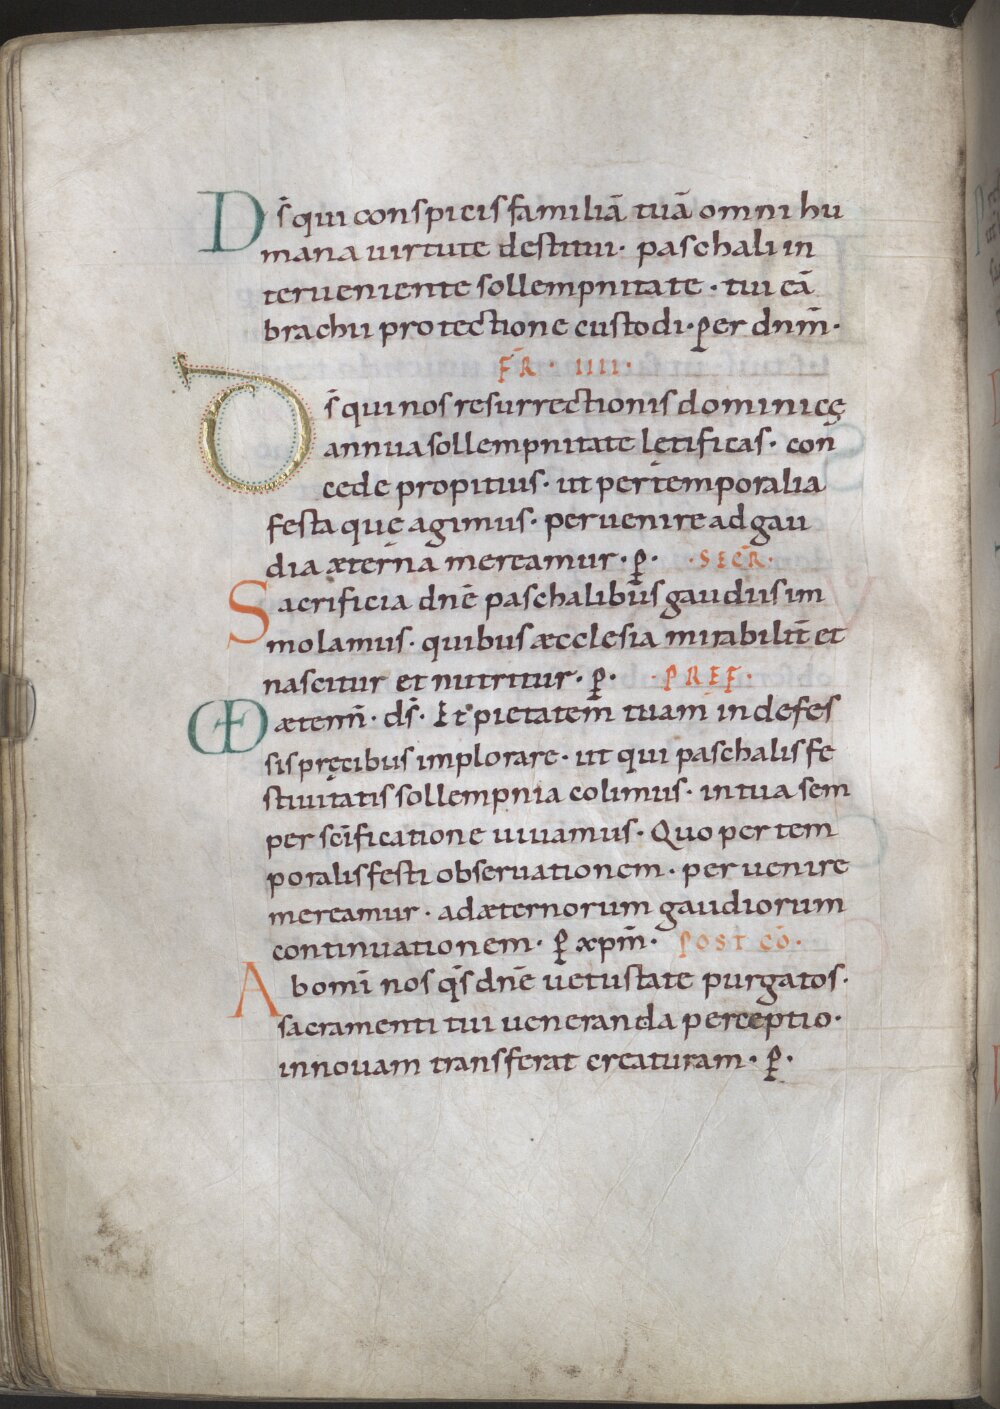 Ds̄ qui conspicis familiā tuā omni hu
mana uirtute destitui· paschali in
terueniente sollempnitate· tui eā
brachii protectione custodi· per dnm̄·
FR̄· IIII·
Ds̄ qui nos resurrectionis dominicę
annua sollempnitate lętificas· con
cede propitius· ut per temporalia
festa quę agimus· peruenire ad gau
dia æterna mereamur· p̄· ·SECR̄·
Sacrificia dnē paschalibus gaudiis im
molamus· quibus æcclesia mirabilit̄ et
nascitur et nutritur· p̄· ·PREF̄·
VD æterñ· ds̄· Et pietatem tuam indefes
sis pręcibus implorare· ut qui paschalis fe
stiuitatis sollempnia colimus· in tua sem
per scīficatione uiuamus· Quo per tem
poralis festi obseruationem· peruenire
mereamur· ad æternorum gaudiorum
continuationem· p̄ æpm̄· POST CŌ·
Ab omī nos qs̄ dnē uetustate purgatos·
sacramenti tui ueneranda perceptio·
in nouam transferat creaturam· p̄·